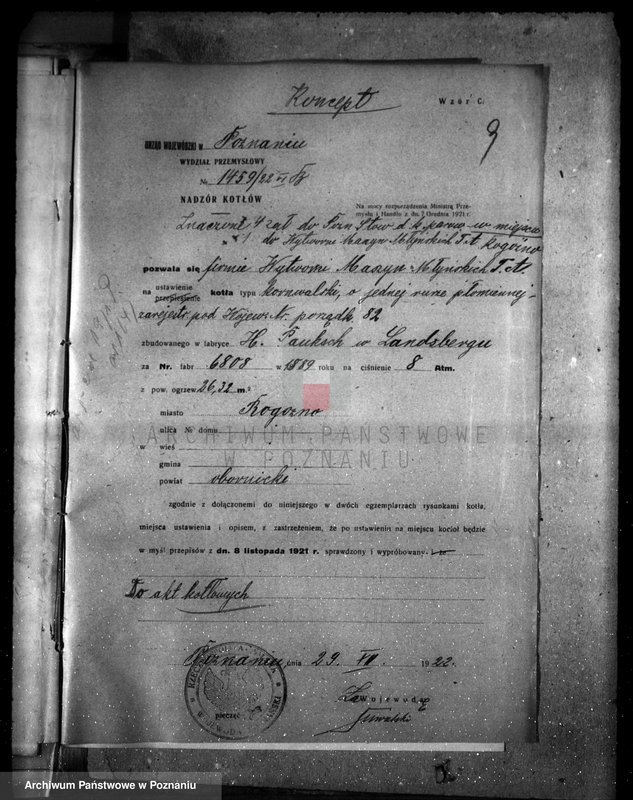 Koncept
Wzór C.
9
URZĄD WOJEWÓDZKI w Poznaniu
WYDZIAŁ PRZEMYSŁOWY
№ 1459/22
NADZÓR KOTŁÓW
Na mocy rozporządzenia Ministra Prze-
mysłu i Handlu z dn. 7 Grudnia 1921 r.
4 zał do Stow d. k. parow w miejscu
do Wytworni Maszyn Młyńskich T. A. Rogoźno
pozwala się firmie Wytworni Maszyn Młynskich T. A.
na ustawienie
przeniesienie kotła typu kornwalski, o jednej rurze płomiennej
zarejestr. pod Wojew. Nr. porządk 82
zbudowanego w fabryce H. Pauksch w Landsbergu
za Nr. fabr 6808 w 1889 roku na ciśnienie 8 Atm.
z pow. ogrzew. 26,32 m.²
miasto Rogozno
ulica № domu
w wieś
gmina
powiat obornicki
zgodnie z dołączonemi do niniejszego w dwóch egzemplarzach rysunkami kotła,
miejsca ustawienia i opisem, z zastrzeżeniem, że po ustawieniu na miejscu kocioł będzie
w myśl przepisów z dn. 8 listopada 1921 r. sprawdzony i wypróbowany i że
Do akt kotłowych
Poznaniu, dnia 29. VII. 1922.
Za Wojewodę
pieczęć
ARCHIWUM PAŃSTWOWE
W POZNANIU
Archiwum Państwowe w Poznaniu